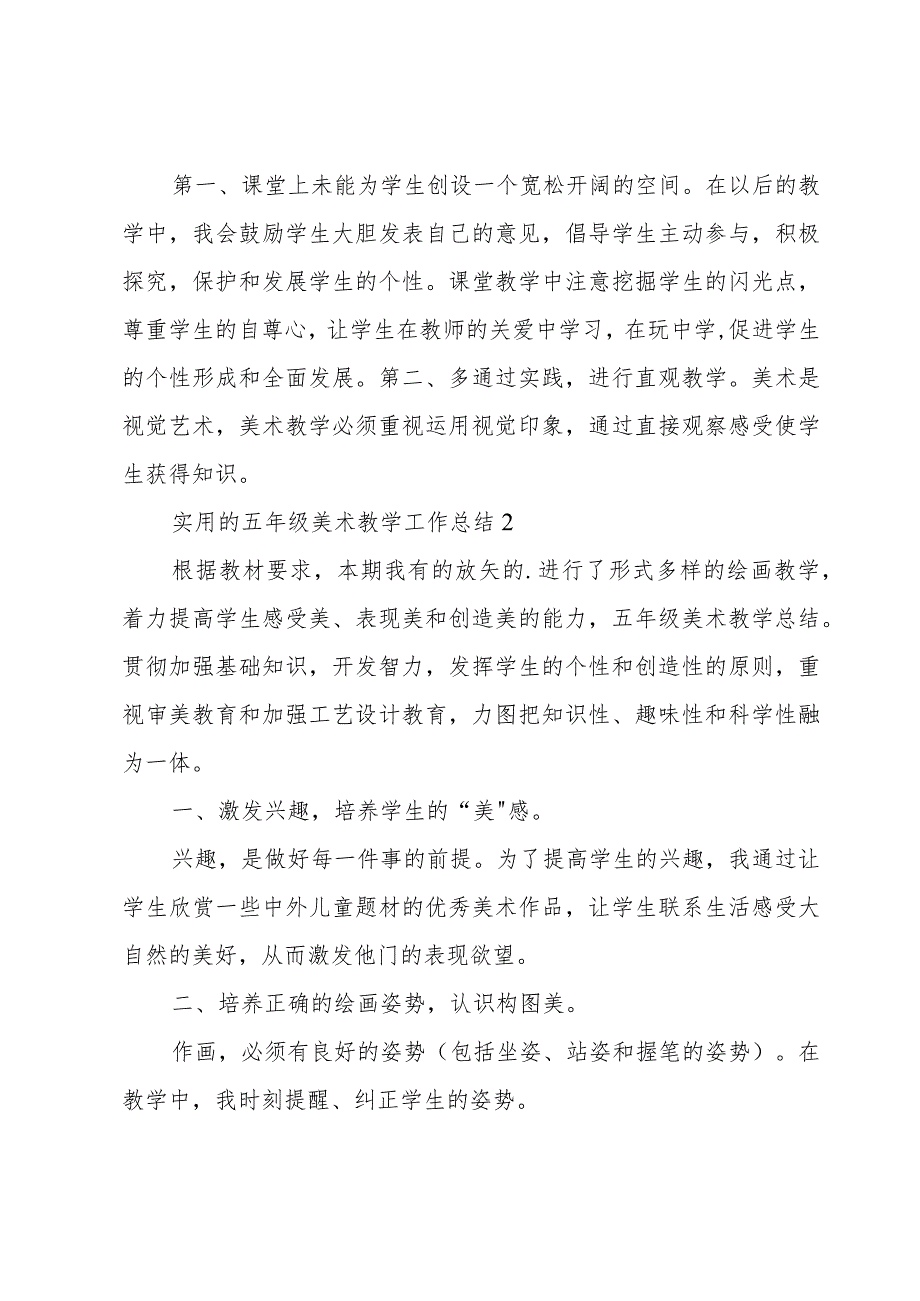 第一、课堂上未能为学生创设一个宽松开阔的空间。在以后的教
学中，我会鼓励学生大胆发表自己的意见，倡导学生主动参与，积极
探究，保护和发展学生的个性。课堂教学中注意挖掘学生的闪光点，
尊重学生的自尊心，让学生在教师的关爱中学习，在玩中学,促进学生
的个性形成和全面发展。第二、多通过实践，进行直观教学。美术是
视觉艺术，美术教学必须重视运用视觉印象，通过直接观察感受使学
生获得知识。
实用的五年级美术教学工作总结2
根据教材要求，本期我有的放矢的.进行了形式多样的绘画教学，
着力提高学生感受美、表现美和创造美的能力，五年级美术教学总结。
贯彻加强基础知识，开发智力，发挥学生的个性和创造性的原则，重
视审美教育和加强工艺设计教育，力图把知识性、趣味性和科学性融
为一体。
一、激发兴趣，培养学生的“美"感。
兴趣，是做好每一件事的前提。为了提高学生的兴趣，我通过让
学生欣赏一些中外儿童题材的优秀美术作品，让学生联系生活感受大
自然的美好，从而激发他门的表现欲望。
二、培养正确的绘画姿势，认识构图美。
作画，必须有良好的姿势（包括坐姿、站姿和握笔的姿势）。在
教学中，我时刻提醒、纠正学生的姿势。